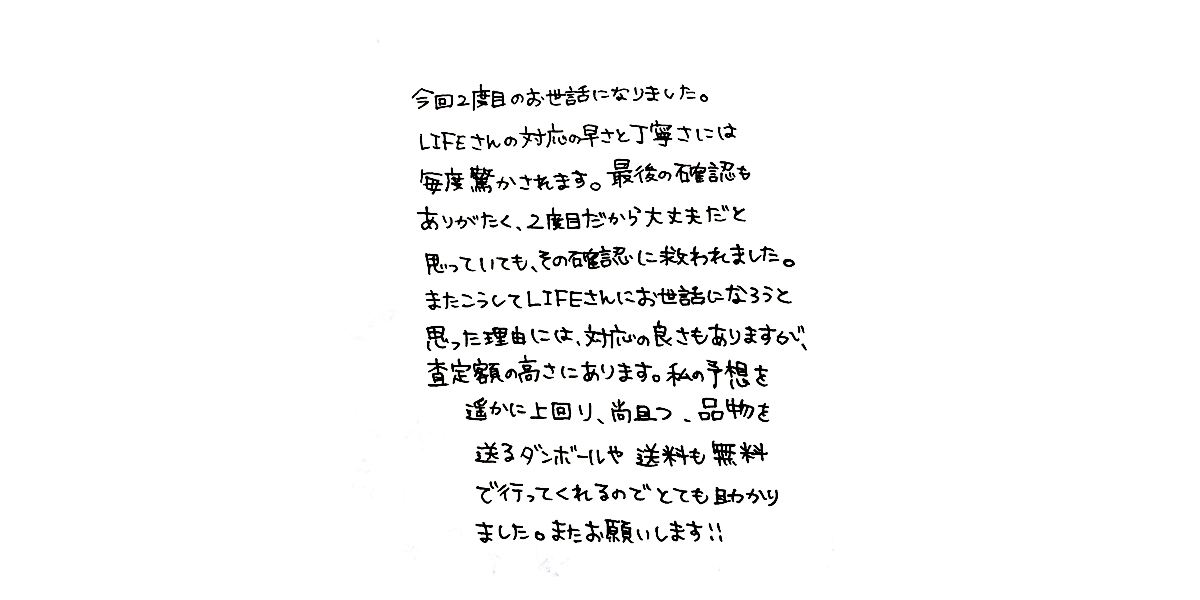 今回2度目のお世話になりました。
LIFEさんの対応の早さと丁寧さには
毎度驚かされます。最後の確認も
ありがたく、2度目だから大丈夫だと
思っていても、その確認に救われました。
またこうしてLIFEさんにお世話になろうと
思った理由には、対応の良さもありますが、
査定額の高さにあります。私の予想を
遥かに上回り、尚且つ、品物を
送るダンボールや送料も無料
で行ってくれるのでとても助かり
ました。またお願いします!!